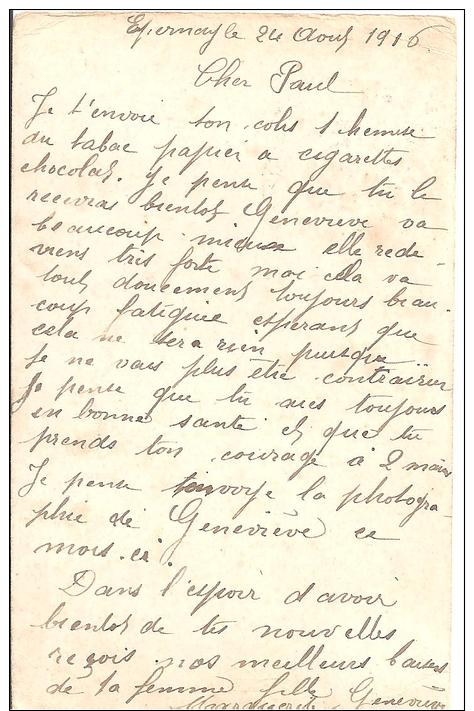 Epernay le 24 Aout 1916.
Cher Paul
Je t'envoie ton colis 1 chemise
du tabac papier a cigarettes
chocolat. Je pense que tu le
recevras bientot Geneviève va
beaucoup mieux elle rede
viens très forte moi cela va
tout doucement toujours beau.
coup fatiguée esperant que
cela ne sera rien puisque
je ne vais plus etre
Je pense que tu aies toujours
en bonne santé et que tu
prends ton courage à 2 mains
Je pense la photogra-
phie de Geneviève ce
mois.ci.
Dans l'espoir d avoir
bientot de tes nouvelles
reçois nos meilleurs baisers
de ta femme fille Geneviève
Marguerite